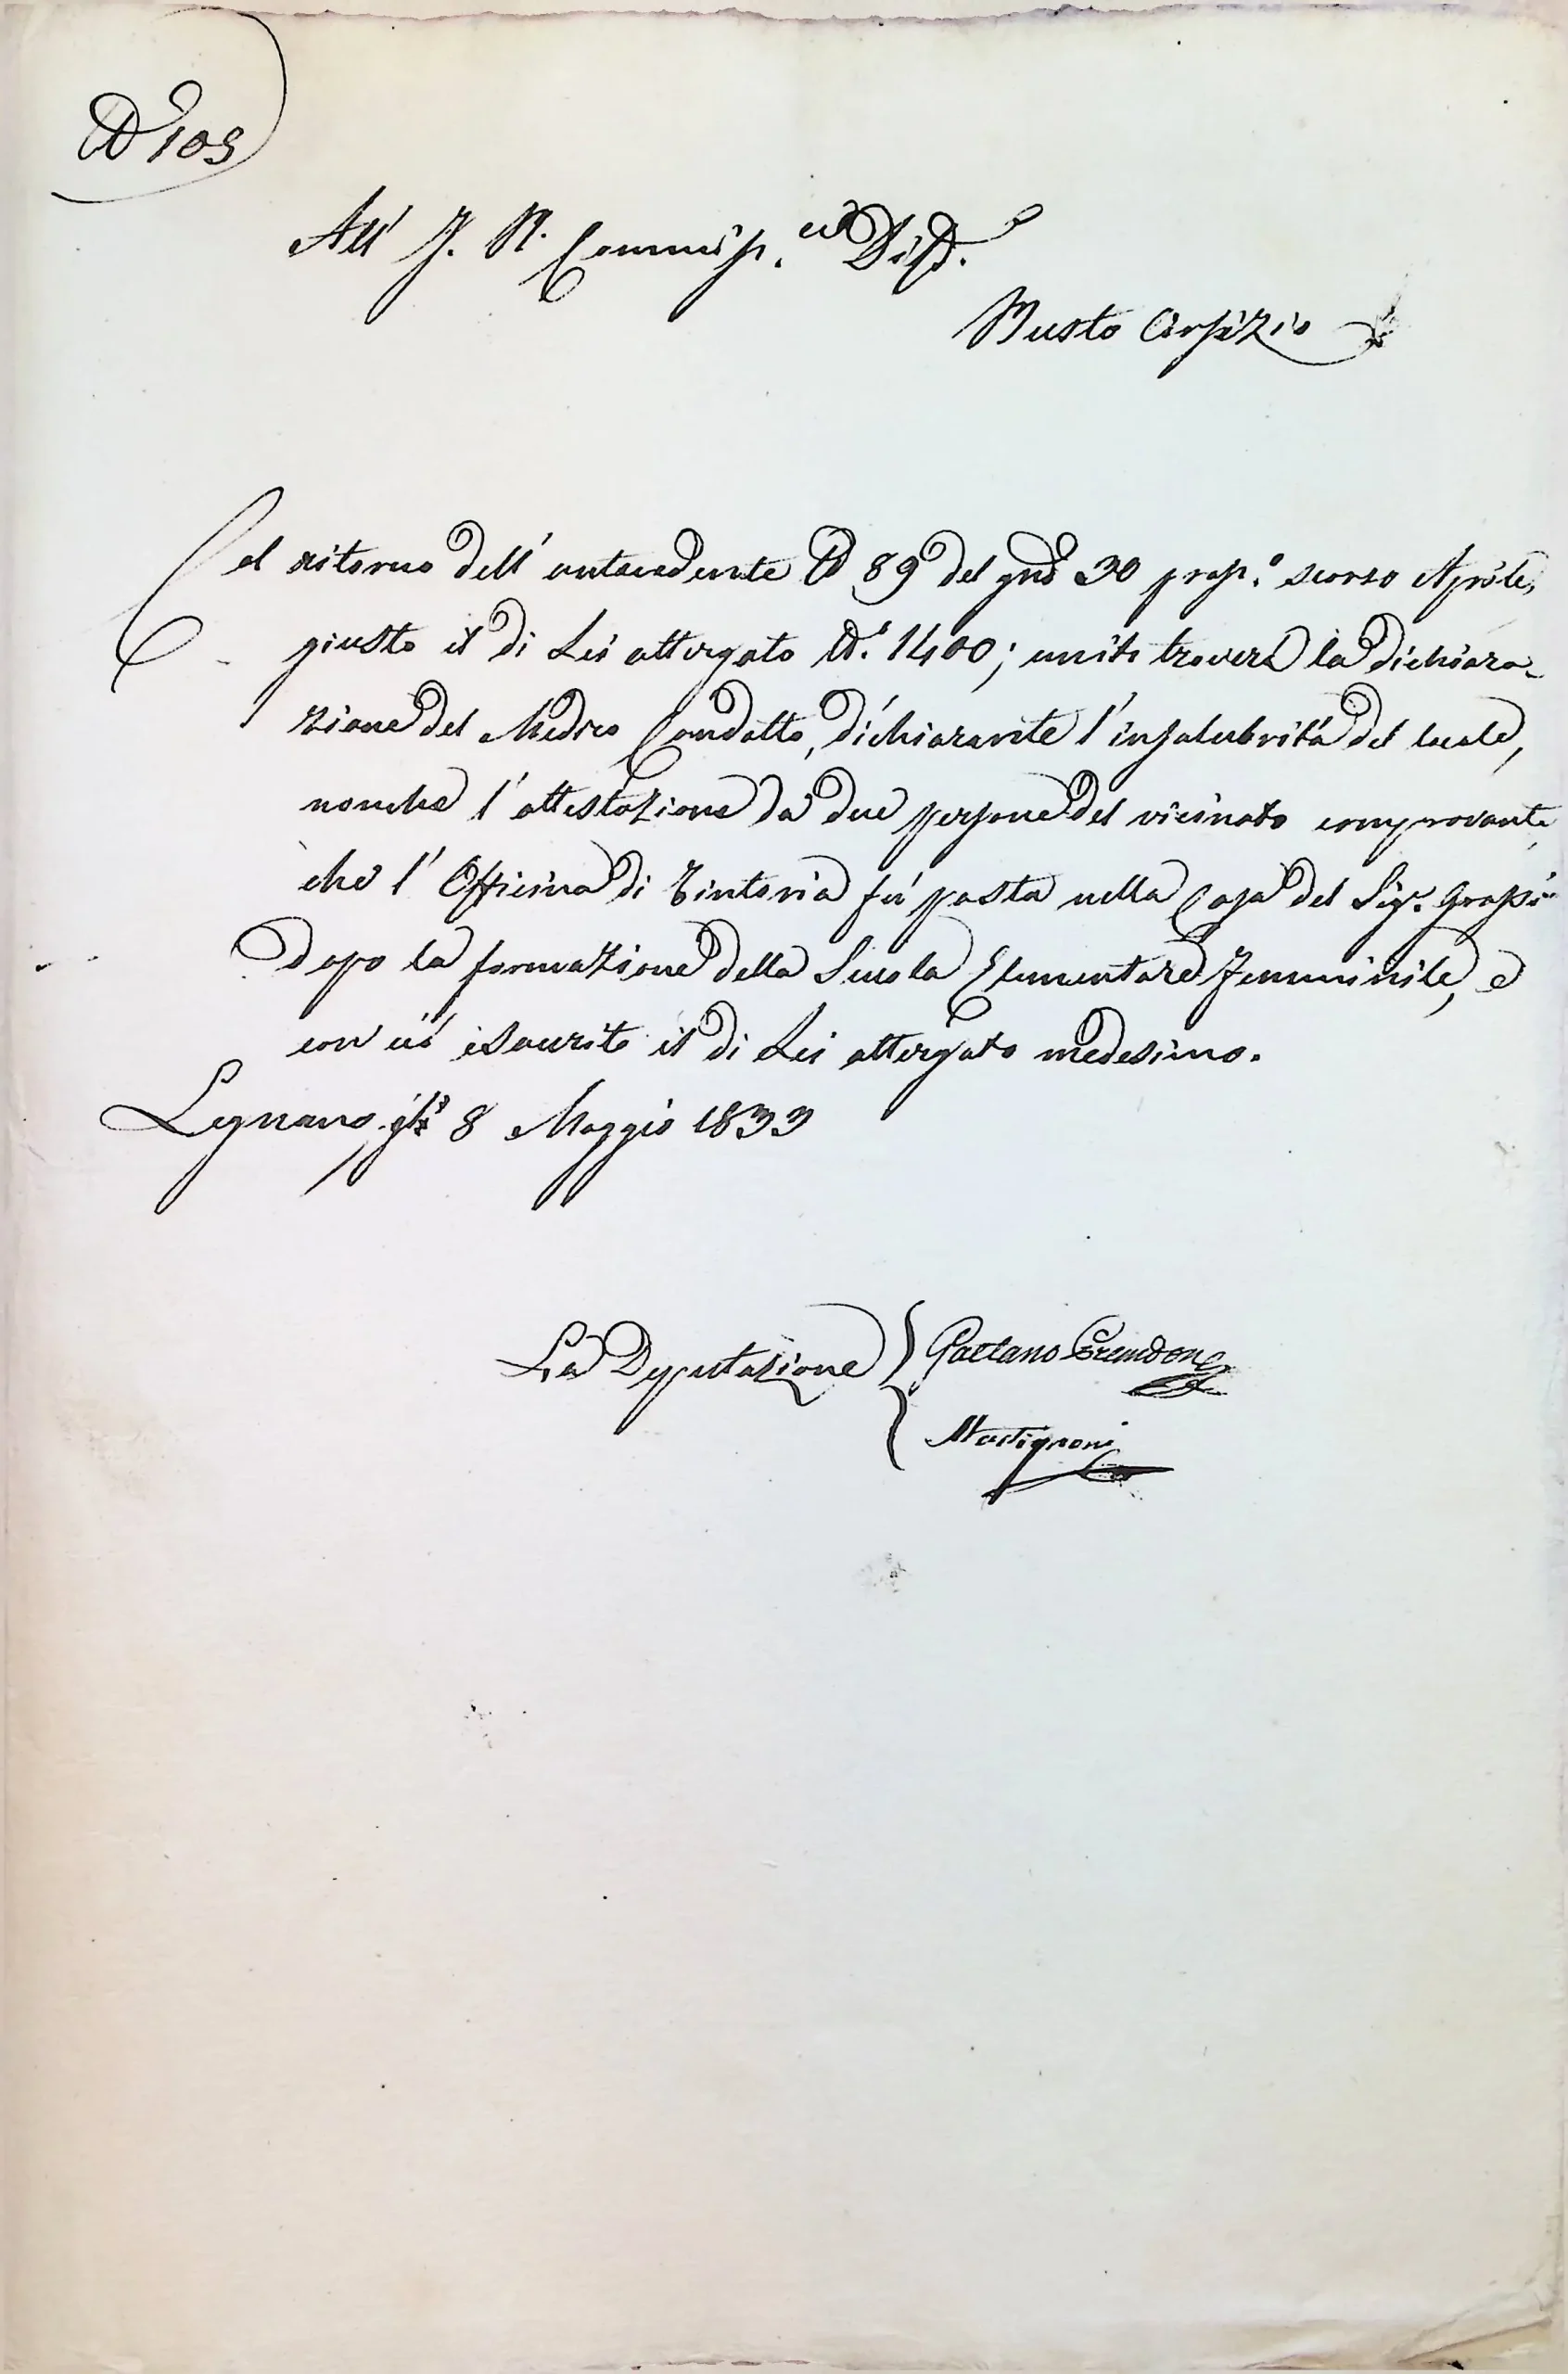 N° 103
All' I. R. Commiss.cio Dist.e
Busto Arsizio
Nel ritorno dell' antecedente N° 89 del gno 30 pross.° scorso Aprile,
giusto il di Lei attergato N.° 1400; unite troverà la dichiara-
zione del Medico Condotto, dichiarante l'insalubrità del locale,
nonche l'attestazione da due persone del vicinato comprovante,
che l'Officina di Tintoria fù posta nella Casa del Sig.r Grassi
dopo la formazione della Scuola Elementare Femminile, e
con ciò esaurito il di Lei attergato medesimo.
Legnano, 8 Maggio 1833
La Deputazione Gaetano